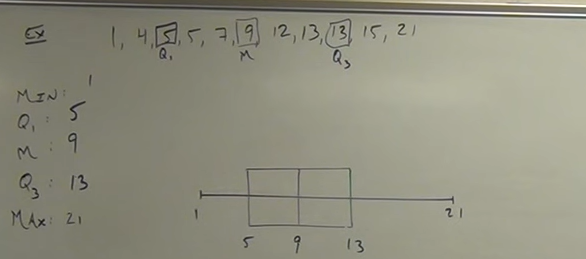 Ex 1, 4, 5, 5, 7, 9, 12, 13, 13, 15, 21
Q1 M Q3
MIN: 1
Q1: 5
M: 9
Q3: 13
MAX: 21
1 21
5 9 13